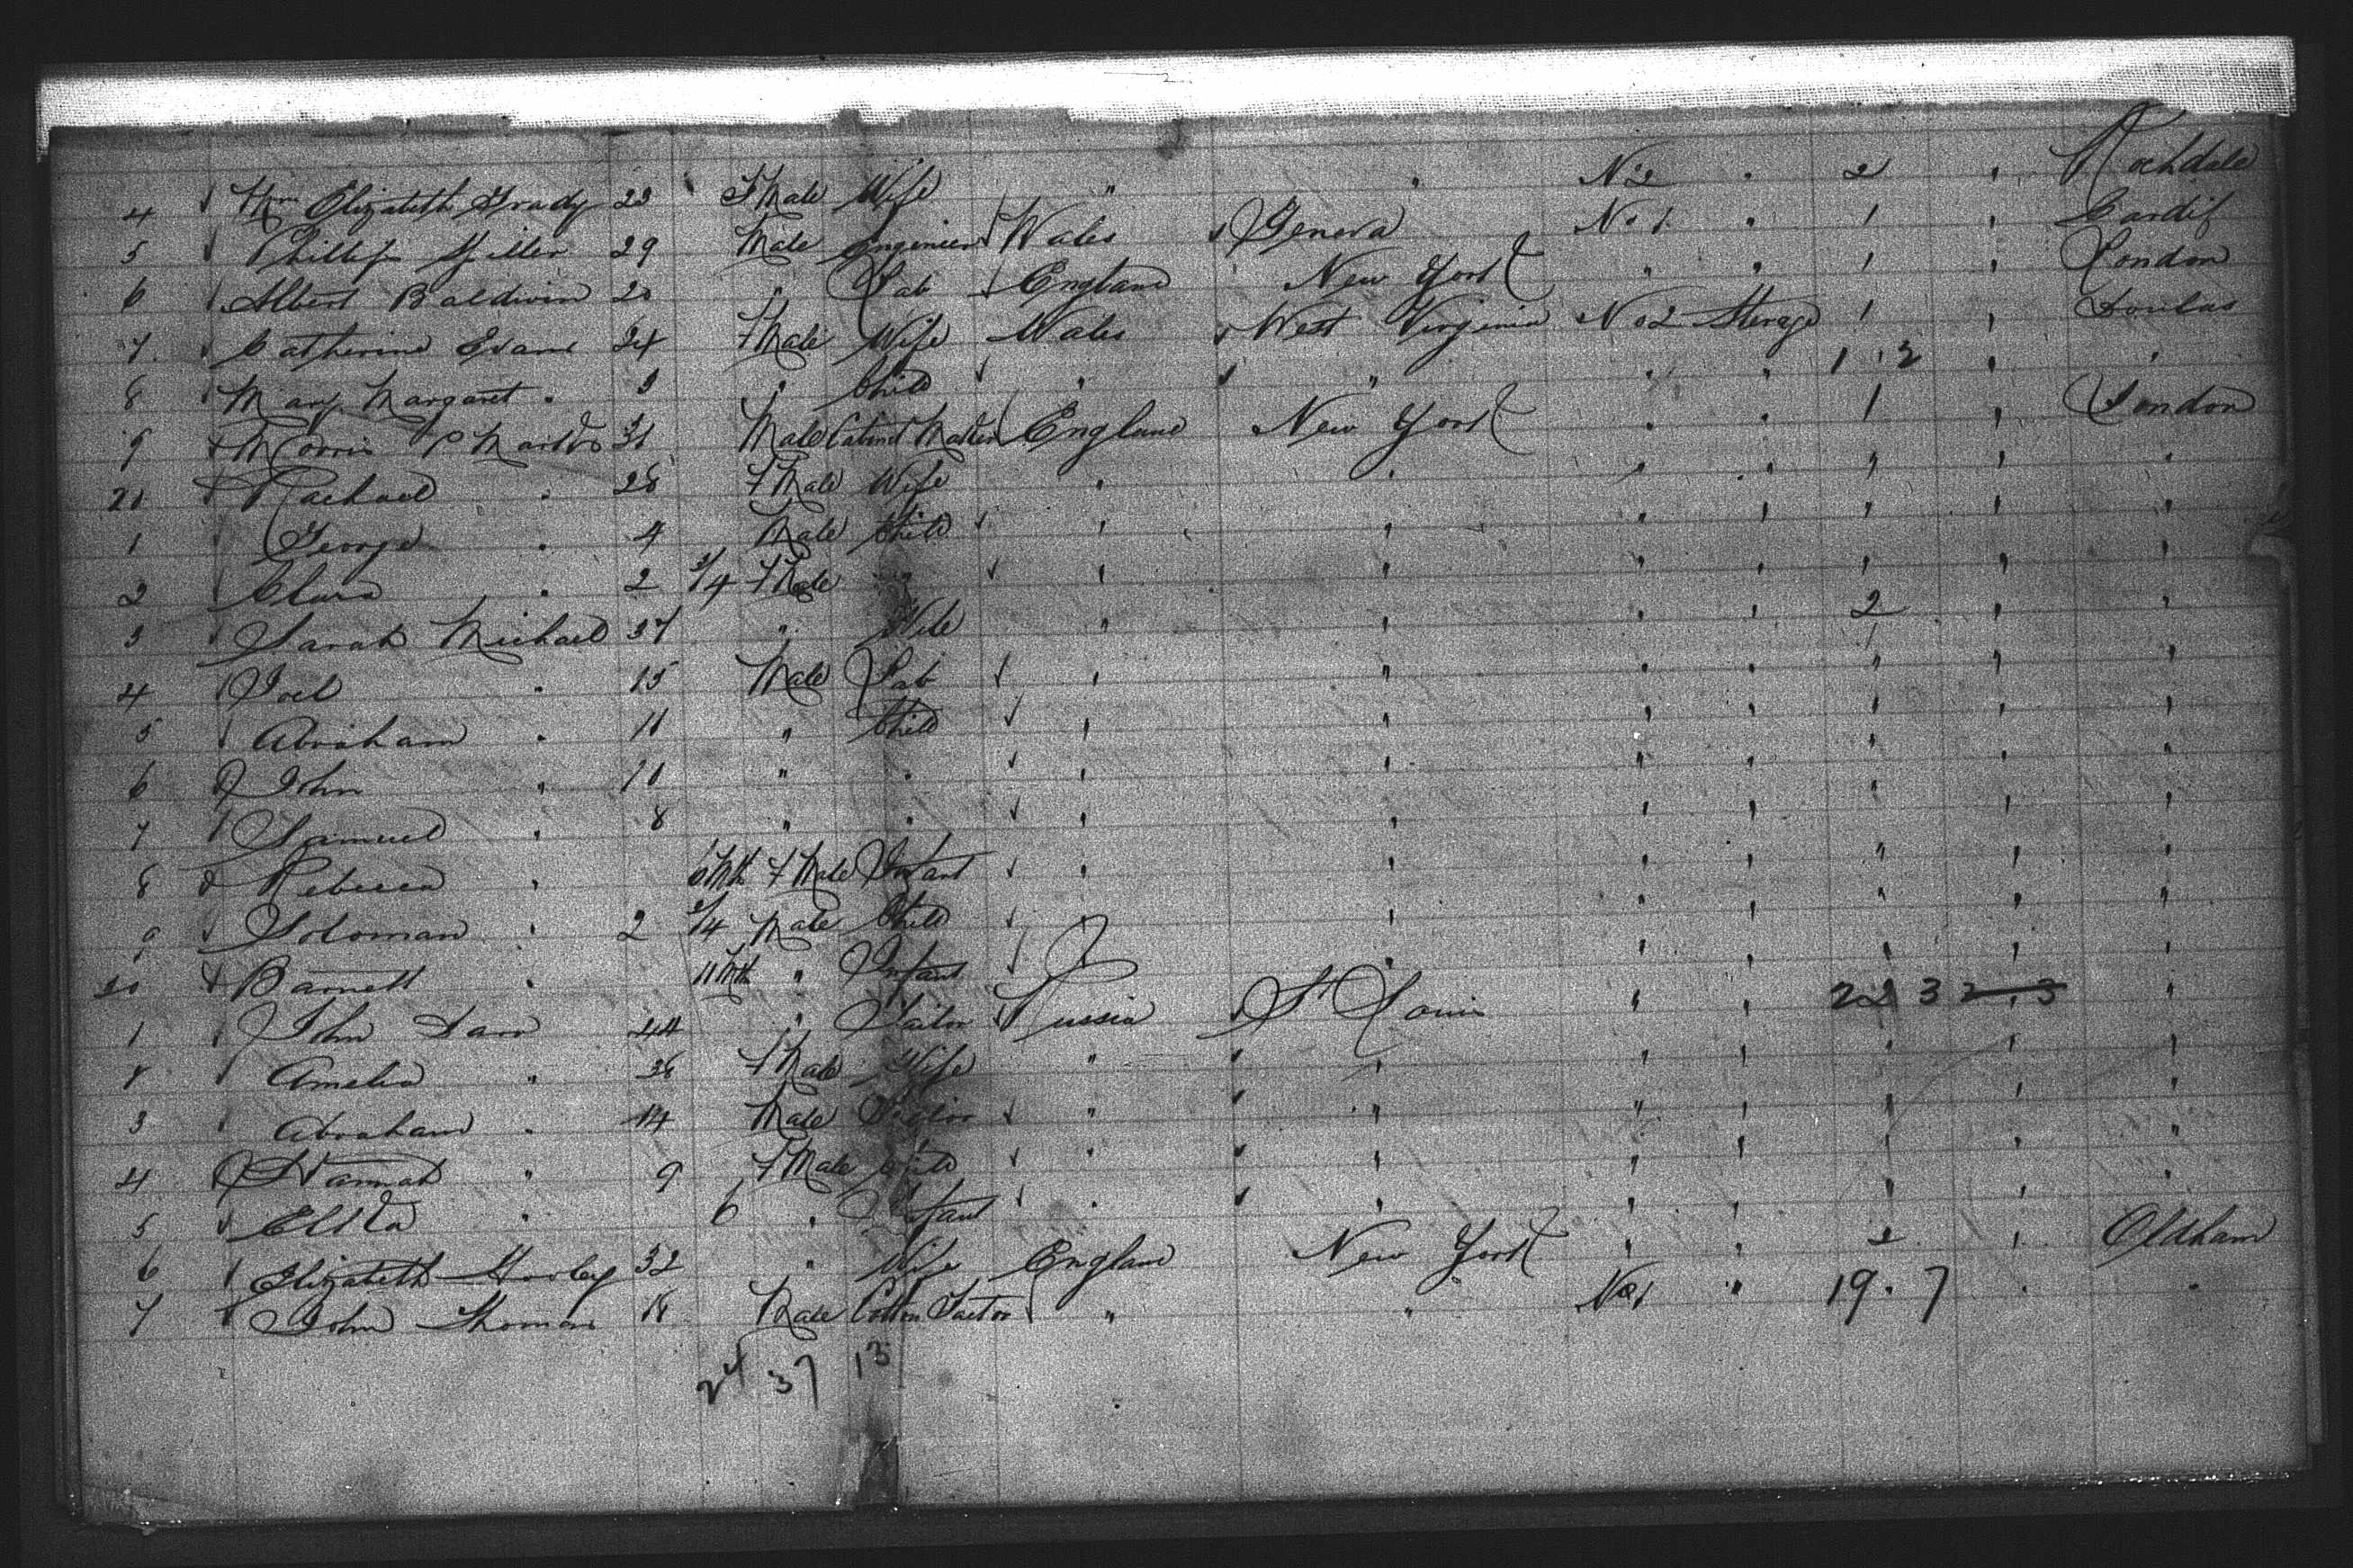 4 Mrs Elizabeth Grady 23 F Male Wife " " No 2 " 2 " Rochdale
5 Phillip Spiller 29 Male Engenieer Wales Geneva No 1 " 1 " Cardif
6 Albert Baldwin 20 " Lab England New York " " 1 " London
7 Catherine Evans 24 F Male Wife Wales West Virginia No 2 Sterage 1 "
8 Mary Margaret " 3 " Child " " " " 1 . 2 " "
9 Morris P 31 Male Cabinet Maker England New York " " 1 " London
20 Rachael " 28 F Male Wife " " " " " " "
1 George " 4 Male Child " " " " " " "
2 Clara " 2 3/4 F Male " " " " " " " "
3 Sarah Michael 37 " Wife " " " " 2 " "
4 Joel " 15 Male Lab " " " " " " "
5 Abraham " 11 " Child " " " " " " "
6 John " 10 " " " " " " " " "
7 Samuel " 8 " " " " " " " " "
8 Rebecca " 6 Mth F Male Infant " " " " " " "
9 Soloman " 2 2/4 Male Child " " " " " " "
30 Barnett " 11 Mth " Infant " " " " " "
1 John 44 " Tailor Russia St Louis " " 22 3 2 . 3 "
2 Amelia " 38 F Male Wife " " " " " " "
3 Abraham " 14 Male Tailor " " " " " " "
4 Hannah " 9 F Male Child " " " " " " "
5 " 6 " Infant " " " " " " "
6 Elizabeth 32 " Wife England New York " " 2 " Oldham
7 John Thomas 18 Male Cotton Factor " " No 1 " 19 . 7 " "
24 37 13